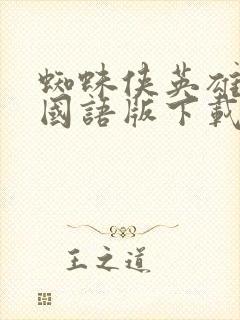 蜘蛛俠英雄
國語版下載
王之道